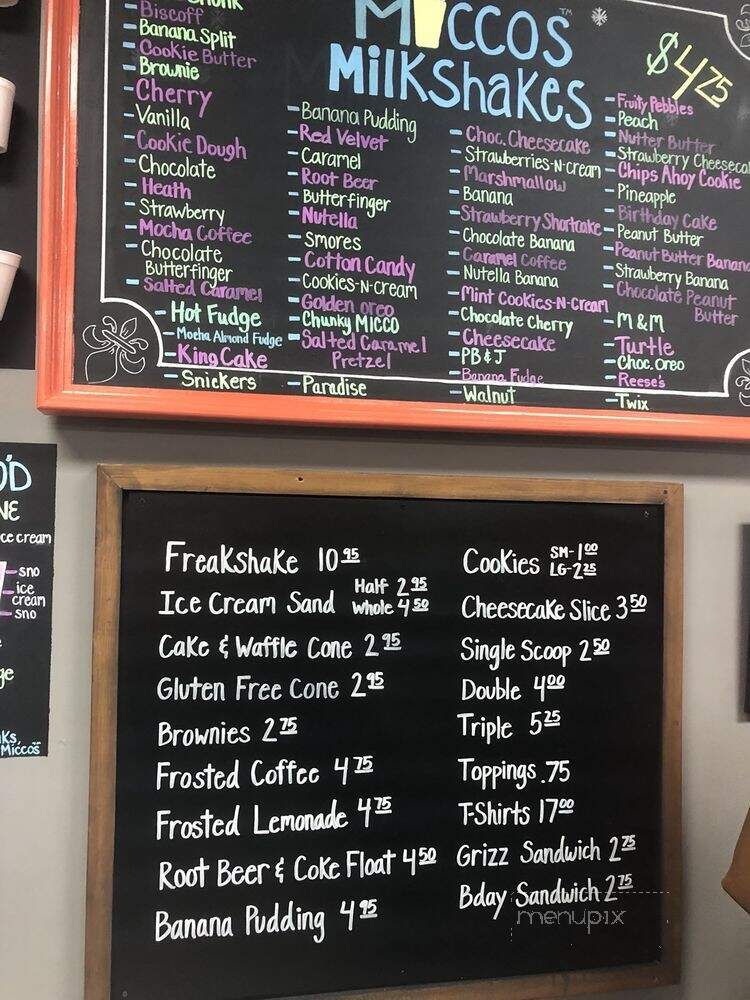 Biscoff
Banana Split
Cookie Butter
Brownie
Cherry
Vanilla
Cookie Dough
Chocolate
Heath
Strawberry
Mocha Coffee
Chocolate
Butterfinger
Salted Caramel
Hot Fudge
Mocha Almond Fudge
King Cake
Snickers
Miccos™
Milkshakes
$4.75
Banana Pudding
Red Velvet
Caramel
Root Beer
Butterfinger
Nutella
Smores
Cotton Candy
Cookies-n-cream
Golden oreo
Chunky MICCO
Salted Caramel
Pretzel
Paradise
Choc. Cheesecake
Strawberries-n-cream
Marshmallow
Banana
Strawberry Shortcake
Chocolate Banana
Caramel Coffee
Nutella Banana
Mint Cookies-n-cream
Chocolate Cherry
Cheesecake
PB & J
Banana Fudge
Walnut
Fruity Pebbles
Peach
Nutter Butter
Strawberry Cheeseca
Chips Ahoy Cookie
Pineapple
Birthday Cake
Peanut Butter
Peanut Butter Banana
Strawberry Banana
Chocolate Peanut
Butter
M & M
Turtle
Choc. Oreo
Reese's
Twix
O'D
NE
ce cream
sno
ice
cream
sno
ge
ks,
Miccos
Freakshake 10 95
Ice Cream Sand Half 2 95
Whole 4 50
Cake & Waffle Cone 2 95
Gluten Free Cone 2 95
Brownies 2 75
Frosted Coffee 4 75
Frosted Lemonade 4 75
Root Beer & Coke Float 4 50
Banana Pudding 4 95
Cookies SM-1 00
LG-2 25
Cheesecake Slice 3 50
Single Scoop 2 50
Double 4 00
Triple 5 25
Toppings .75
T-Shirts 17 00
Grizz Sandwich 2 75
Bday Sandwich 2 75
menupix